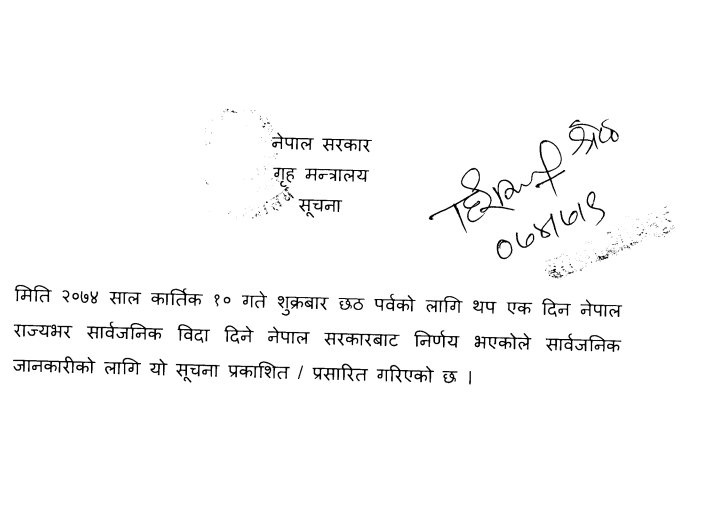 नेपाल सरकार
गृह मन्त्रालय
सूचना
श्रेष्ठ
०७४।७।९
मिति २०७४ साल कार्तिक १० गते शुक्रबार छठ पर्वको लागि थप एक दिन नेपाल
राज्यभर सार्वजनिक विदा दिने नेपाल सरकारबाट निर्णय भएकोले सार्वजनिक
जानकारीको लागि यो सूचना प्रकाशित / प्रसारित गरिएको छ ।